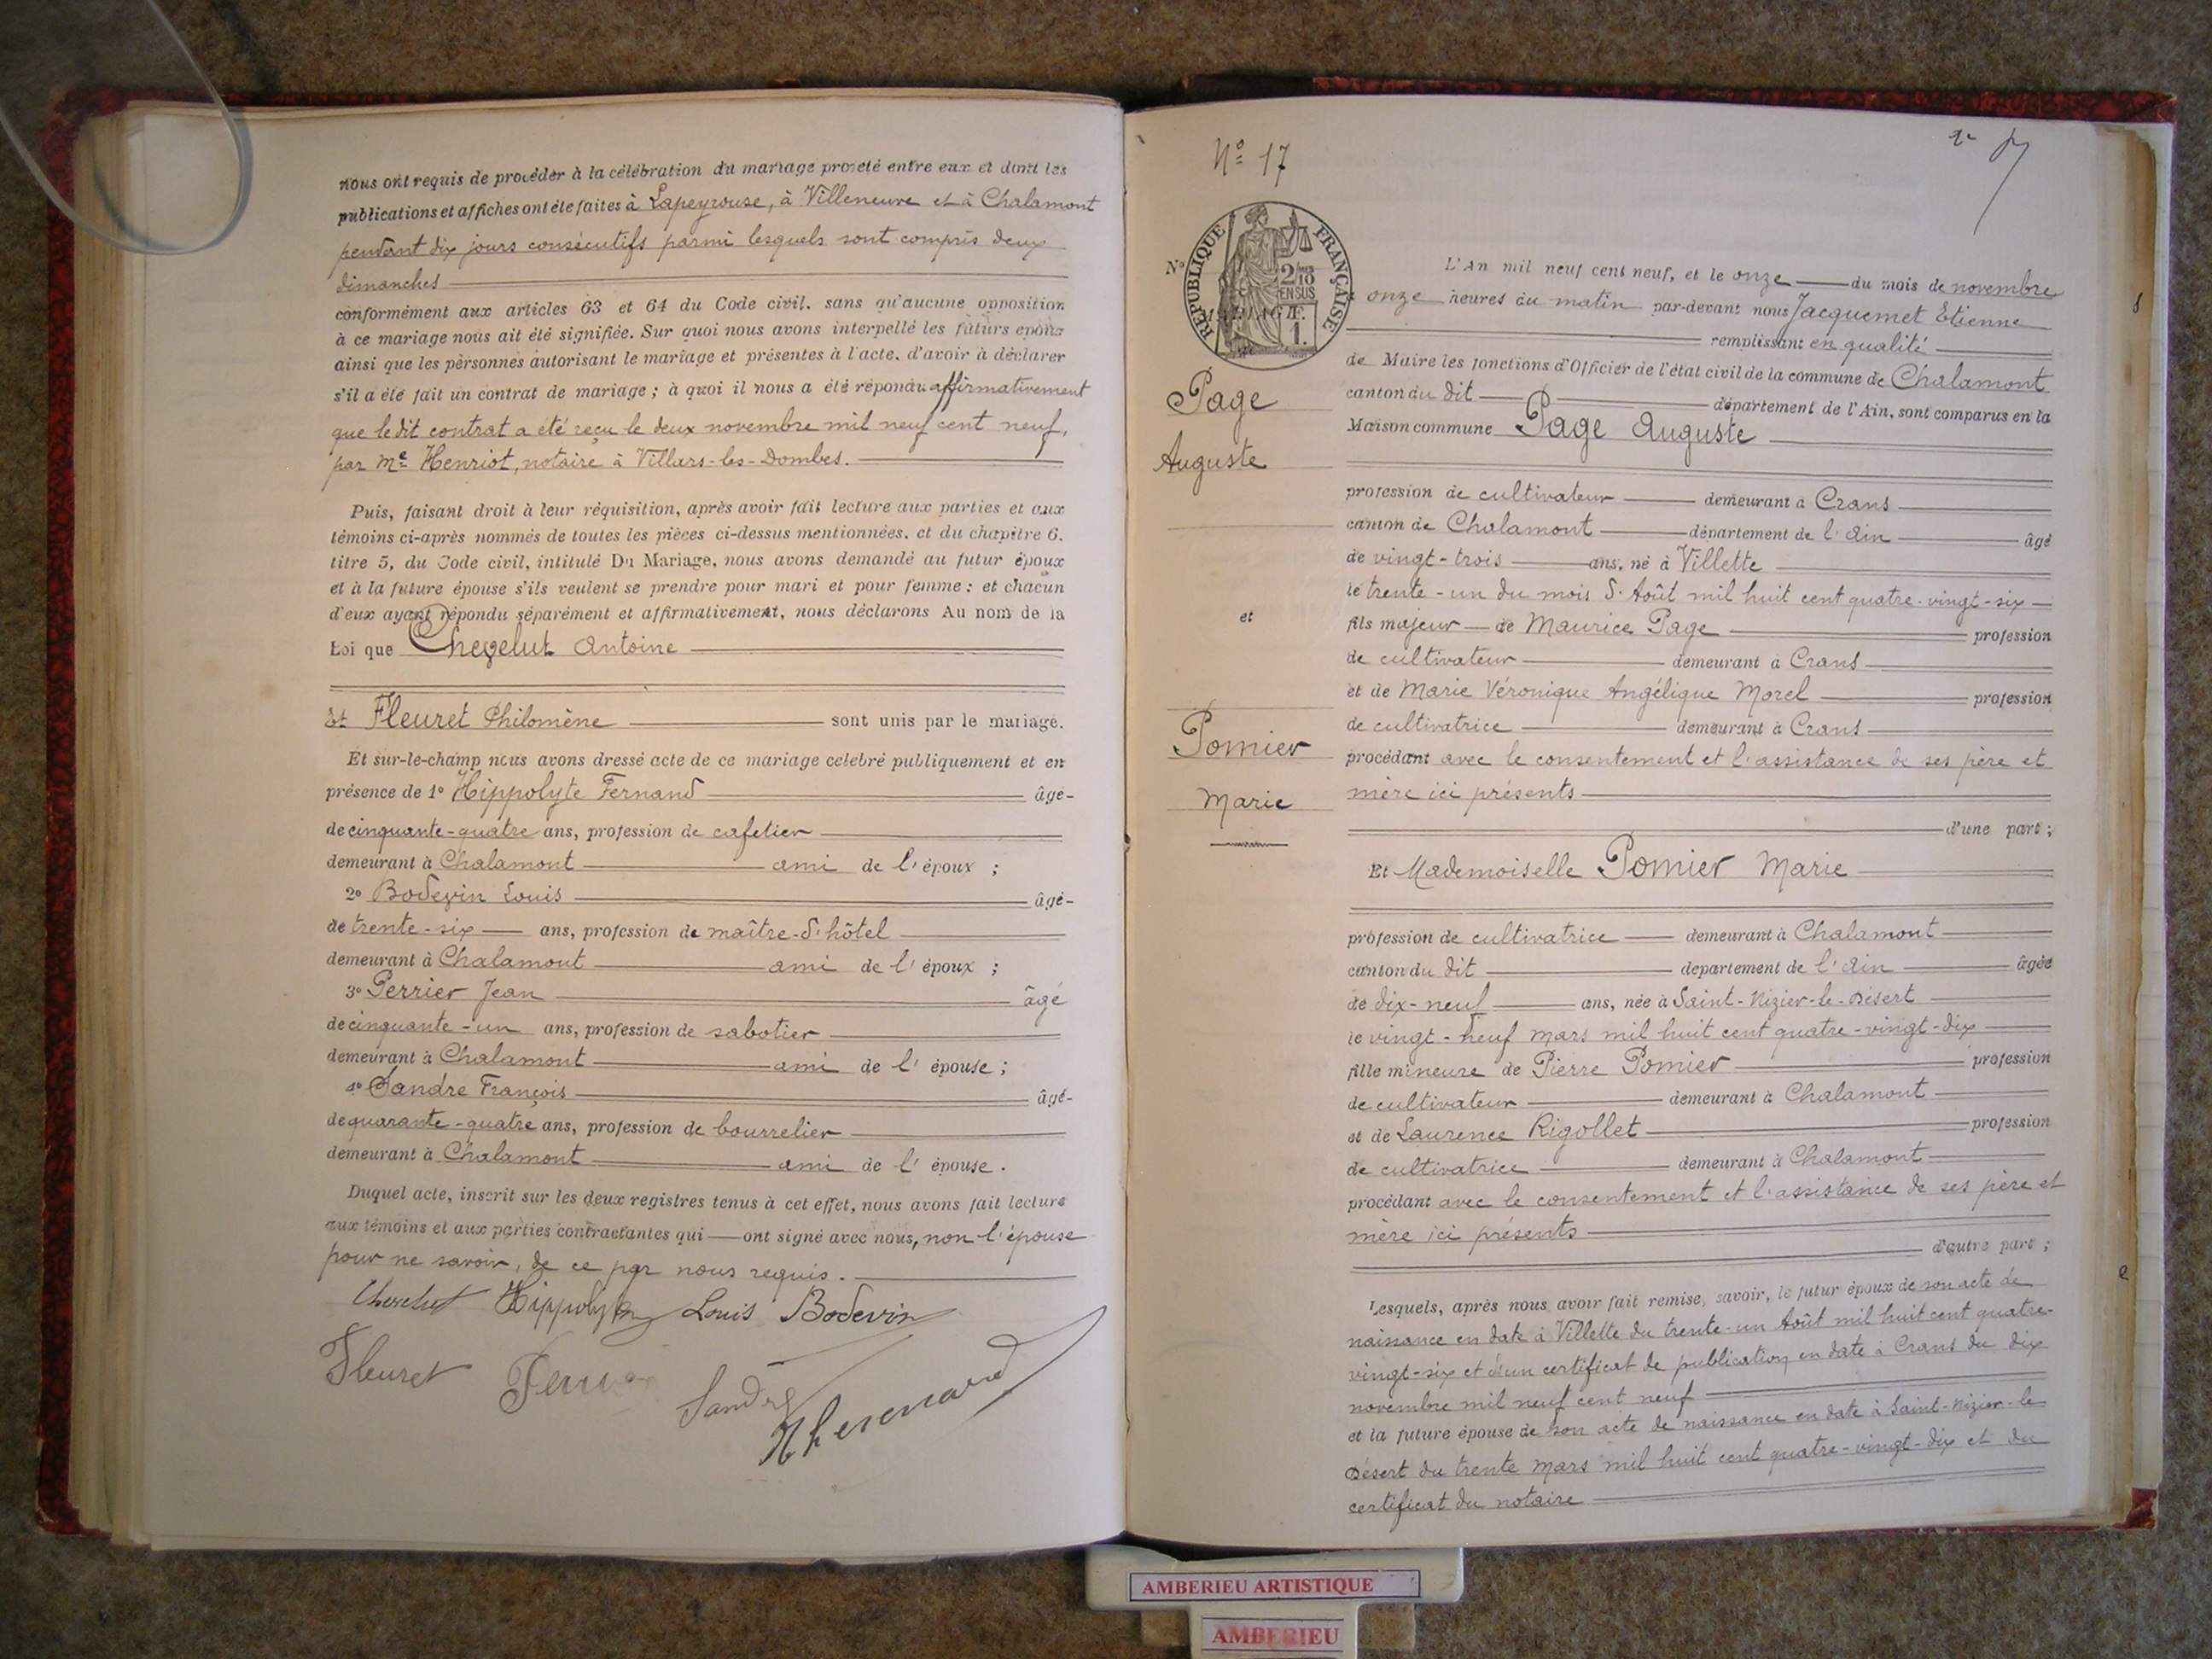 nous ont requis de procéder à la célébration du mariage projeté entre eux et dont les
publications et affiches ont été faites à Lapeyrouse, à Villeneuve et à Chalamont
pendant dix jours consécutifs parmi lesquels sont compris deux
dimanches
conformément aux articles 63 et 64 du Code civil. sans qu'aucune opposition
à ce mariage nous ait été signifiée. Sur quoi nous avons interpellé les futurs époux
ainsi que les personnes autorisant le mariage et présentes à l'acte, d'avoir à déclarer
s'il a été fait un contrat de mariage ; à quoi il nous a été répondu affirmativement
que le dit contrat a été reçu le deux novembre mil neuf cent neuf,
par Me Henriot, notaire à Villars-les-Dombes.
Puis, faisant droit à leur réquisition, après avoir fait lecture aux parties et aux
témoins ci-après nommés de toutes les pièces ci-dessus mentionnées, et du chapitre 6,
titre 5, du Code civil, intitulé Du Mariage, nous avons demandé au futur époux
et à la future épouse s'ils veulent se prendre pour mari et pour femme : et chacun
d'eux ayant répondu séparément et affirmativement, nous déclarons Au nom de la
Loi que Chevelut Antoine
Et Fleuret Philomène sont unis par le mariage.
Et sur-le-champ nous avons dressé acte de ce mariage célébré publiquement et en
présence de 1° Hippolyte Fernand âgé-
de cinquante-quatre ans, profession de cafetier
demeurant à Chalamont ami de l'époux ;
2° Bodevin Louis âgé-
de trente-six ans, profession de maître-d'hôtel
demeurant à Chalamont ami de l'époux ;
3° Perrier Jean âgé
de cinquante-un ans, profession de sabotier
demeurant à Chalamont ami de l'épouse ;
4° Sandre François âgé-
de quarante-quatre ans, profession de bourrelier
demeurant à Chalamont ami de l'épouse.
Duquel acte, inscrit sur les deux registres tenus à cet effet, nous avons fait lecture
aux témoins et aux parties contractantes qui ont signé avec nous, non l'épouse
pour ne savoir, de ce par nous requis.
Hippolyte Louis Bodevin
Fleuret Sandre
N° 17
RÉPUBLIQUE FRANÇAISE
2/10
EN SUS
1.
N°
L'An mil neuf cent neuf, et le onze du mois de novembre
onze heures du matin par-devant nous Jacquemet Etienne
remplissant en qualité
de Maire les fonctions d'Officier de l'état civil de la commune de Chalamont
canton du dit département de l'Ain, sont comparus en la
Maison commune Page Auguste
Page
Auguste
et
Pomier
Marie
profession de cultivateur demeurant à Crans
canton de Chalamont département de l'Ain âgé
de vingt-trois ans, né à Villette
le trente-un du mois d'Août mil huit cent quatre-vingt-six
fils majeur de Maurice Page profession
de cultivateur demeurant à Crans
et de Marie Véronique Angélique Morel profession
de cultivatrice demeurant à Crans
procédant avec le consentement et l'assistance de ses père et
mère ici présents
d'une part ;
Et Mademoiselle Pomier Marie
profession de cultivatrice demeurant à Chalamont
canton du dit département de l'Ain âgée
de dix-neuf ans, née à Saint-Nizier-le-Désert
le vingt-neuf mars mil huit cent quatre-vingt-dix
fille mineure de Pierre Pomier profession
de cultivateur demeurant à Chalamont
et de Laurence Rigollet profession
de cultivatrice demeurant à Chalamont
procédant avec le consentement et l'assistance de ses père et
mère ici présents
d'autre part ;
Lesquels, après nous avoir fait remise, savoir, le futur époux de son acte de
naissance en date à Villette du trente-un Août mil huit cent quatre-
vingt-six et d'un certificat de publication en date à Crans du dix
novembre mil neuf cent neuf
et la future épouse de son acte de naissance en date à Saint-Nizier-le
Désert du trente mars mil huit cent quatre-vingt-dix et du
certificat du notaire
AMBERIEU ARTISTIQUE
AMBERIEU